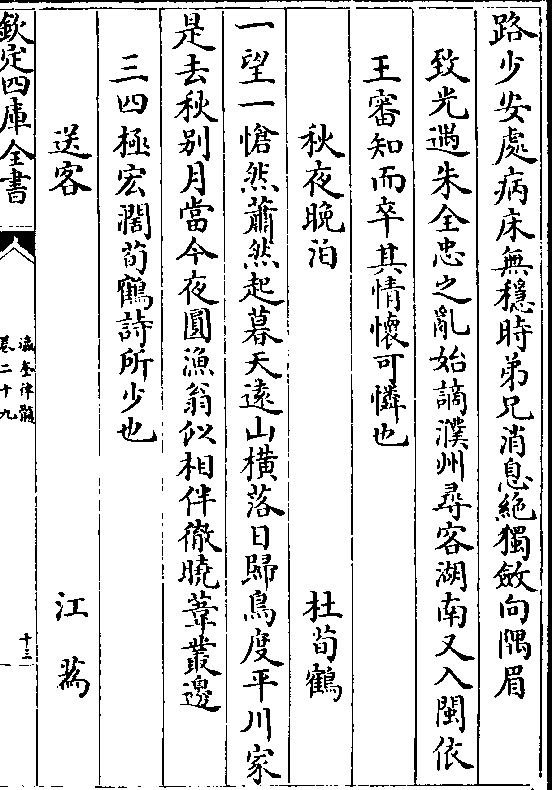 路少安處病床無穩時弟兄消息絶獨斂向隅眉
致光遇朱全忠之亂始謫濮州尋客湖南又入閩依
王審知而卒其情懷可憐也
秋夜晚泊 杜荀鶴
一望一愴然蕭然起暮天遠山横落日歸鳥度平川家
是去秋别月當今夜圓漁翁似相伴徹曉葦叢邊
三四極宏濶荀鶴詩所少也
送客 江為
欽定四庫全書
瀛奎律髓
卷二十九
十三